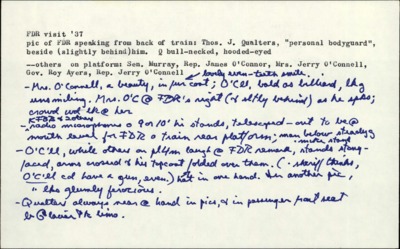 FDR visit '37
pic of FDR speaking from back of train: Thos. J. Qualters, "personal bodyguard",
beside (slightly behind)him. Q bull-necked, hooded-eyed
--others on platform: Sen. Murray, Rep. James O'Connor, Mrs. Jerry O'Connell,
Gov. Roy Ayers, Rep. Jerry O'Connell
lovely even-teeth smile.
- Mrs. O'Connell, a beauty, in fur coat; O'C'll, bald as billiard,
unsmiling. Mrs. O'C @ FDR's right (& slftly behind) as he spks;
crowd @ her
KFDR & 2 others
- radio microphones @ 9 or 10' hi stands, telescoped-out to be @
mouth level for FDR @ train rear platform; man below steadyg
mike stand
- O'C'll, while others on pltfm laugh @ FDR remark, stands stony-
faced, arms crossed & his topcoat folded over them. (
O'C'll cd have a gun, even.) hat in one hand. In another pic,
" lkg glumly ferocious.
- Qualters always near @ hand in pics, & in passenger front seat
limo.